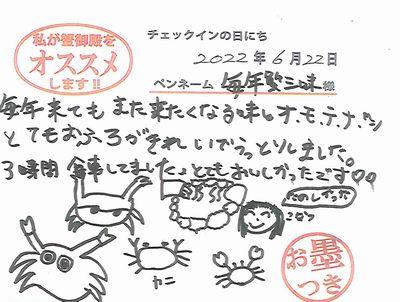 私が蟹御殿を
オススメ
します!!
チェックインの日にち
2022年6月22日
ペンネーム 毎年蟹三昧様
毎年来てもまた来たくなる味とオ・モ・テ・ナ・シ
とてもおふろがきれいでうっとりしました。
3時間食事してました。とてもおいしかったです♡♡
カニ
お墨
つき